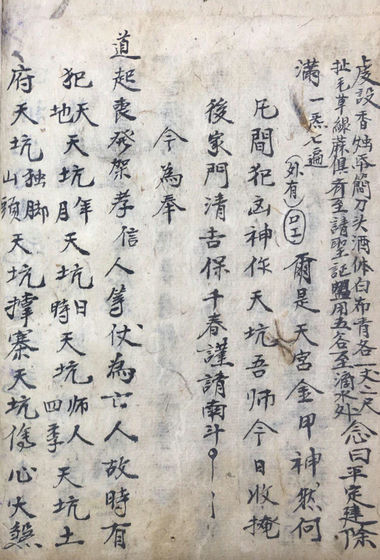 虔設香烛簡刀头酒体白布青各一丈二尺
扯毛草線蔴俱齐至請聖証盟用五谷至滴水处
念曰平定建除
滿一炁七遍外有口工爾是天宮金甲神然何
凡間犯凶神你天坑吾师今日收掩
後家門清吉保千春謹請南斗
今為奉
道起喪發架孝信人等仗為亡人故時有
犯天地天坑年月天坑日時天坑师人四季天坑土
府天坑独脚山頭天坑寨天坑心火煞